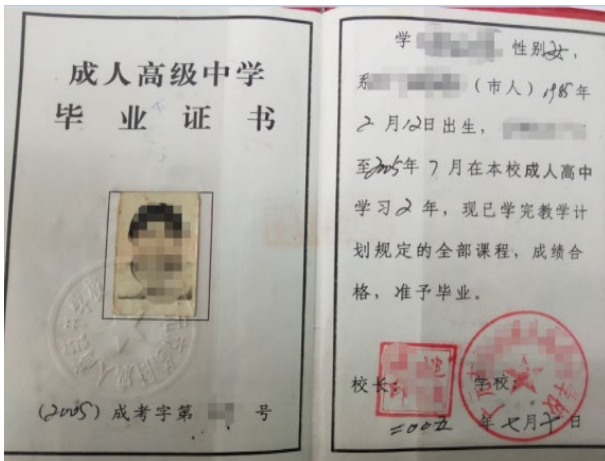 成人高级中学
毕业证书
(2005) 成考字第 号
学 性别女,
系 (市人) 1985年
2月12日出生,
至2005年7月在本校成人高中
学习2年, 现已学完教学计
划规定的全部课程, 成绩合
格, 准予毕业。
校长: 学校:
二00五年七月十日